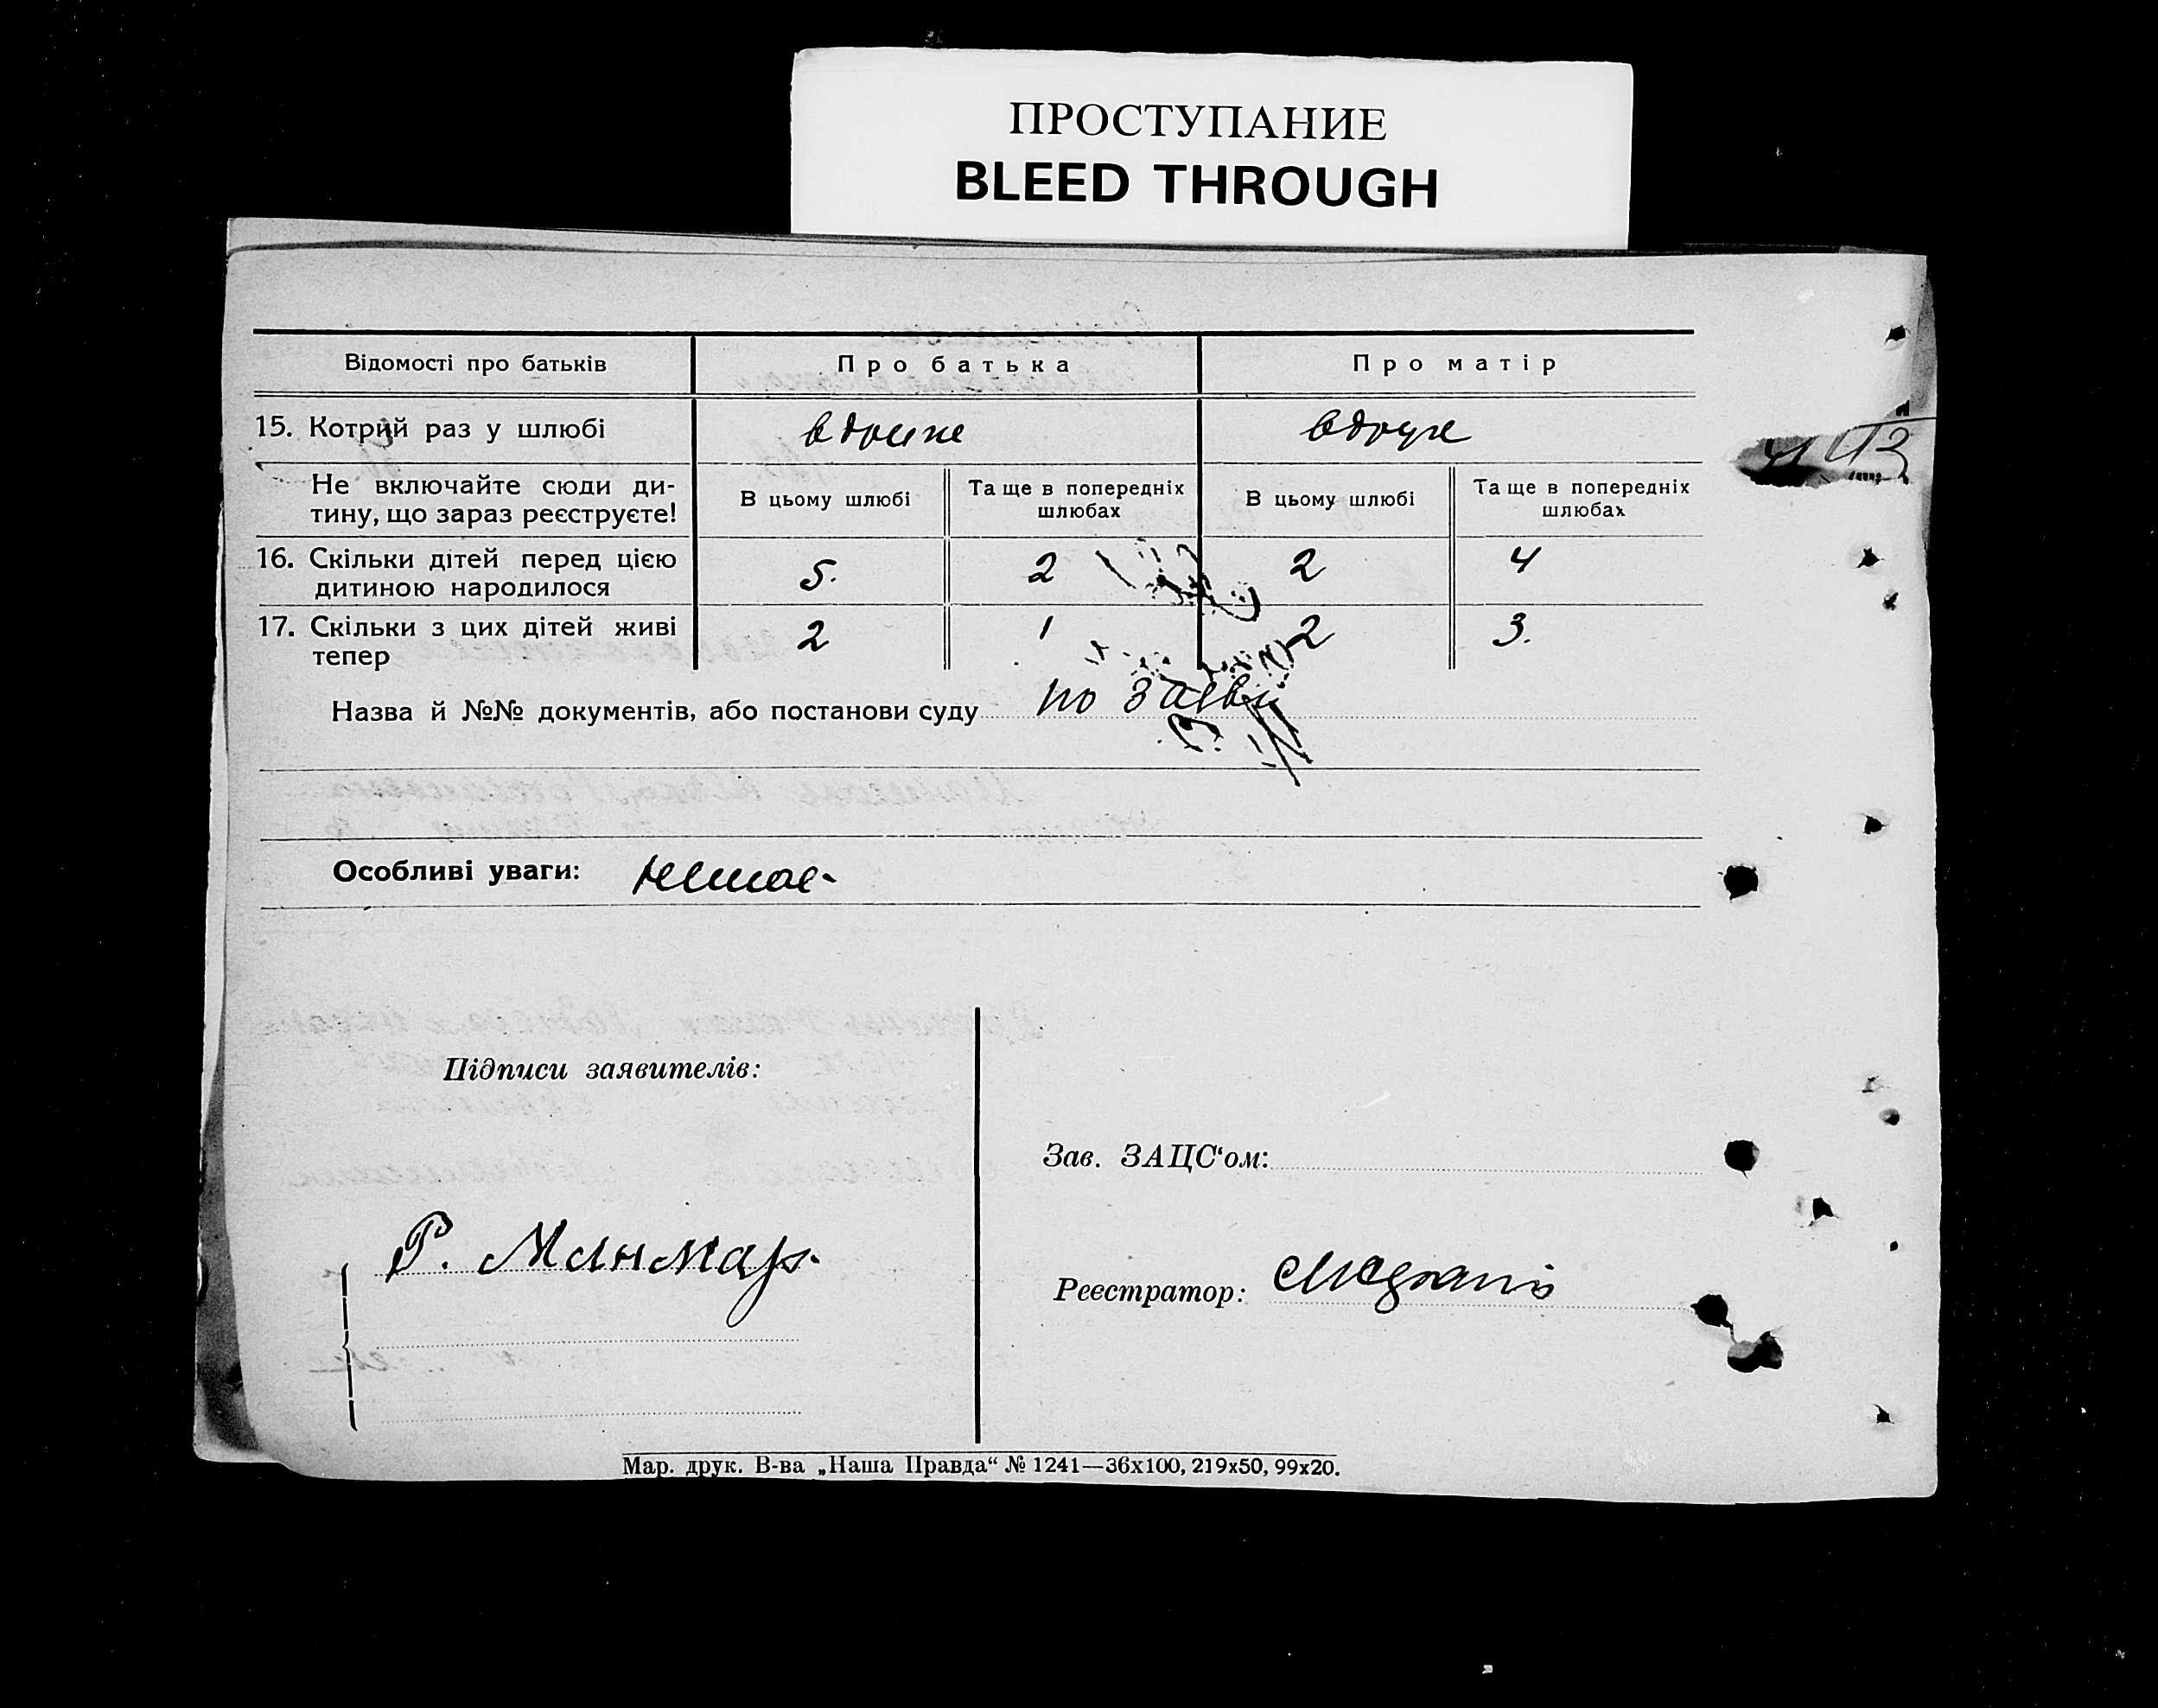 ПРОСТУПАНИЕ
BLEED THROUGH
Відомості про батьків Про батька Про матір
15. Котрий раз у шлюбі вдруге вдруге
Не включайте сюди ди-
тину, що зараз реєструєте!
В цьому шлюбі Та ще в попередніх шлюбах В цьому шлюбі Та ще в попередніх шлюбах
16. Скільки дітей перед цією
дитиною народилося 5. 2 2 4
17. Скільки з цих дітей живі
тепер 2 1 2 3.
Назва й №№ документів, або постанови суду по заяві
Особливі уваги: немає
Підписи заявителів:
Зав. ЗАЦС‘ом:
Р.
Реєстратор:
Мар. друк. В-ва „Наша Правда“ № 1241—36х100, 219х50, 99х20.